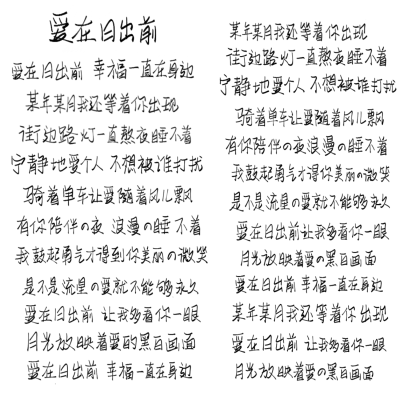 爱在日出前
爱在日出前 幸福一直在身边
某年某月我还等着你出现
街边路灯一直熬夜睡不着
宁静地爱个人 不想被谁打扰
骑着单车让爱随着风儿飘
有你陪伴の夜 浪漫の睡不着
我鼓起勇气才得到你美丽の微笑
是不是流星の爱就不能够永久
爱在日出前 让我多看你一眼
月光放映着爱的黑白画面
爱在日出前 幸福一直在身边
某年某月我还等着你出现
街边路灯一直熬夜睡不着
宁静地爱个人 不想被谁打扰
骑着单车让爱随着风儿飘
有你陪伴の夜浪漫の睡不着
我鼓起勇气才得你美丽の微笑
是不是流星の爱就不能够永久
爱在日出前让我多看你一眼
月光放映着爱の黑白画面
爱在日出前 幸福一直在身边
某年某月我还等着你出现
爱在日出前 让我多看你一眼
月光放映着爱の黑白画面